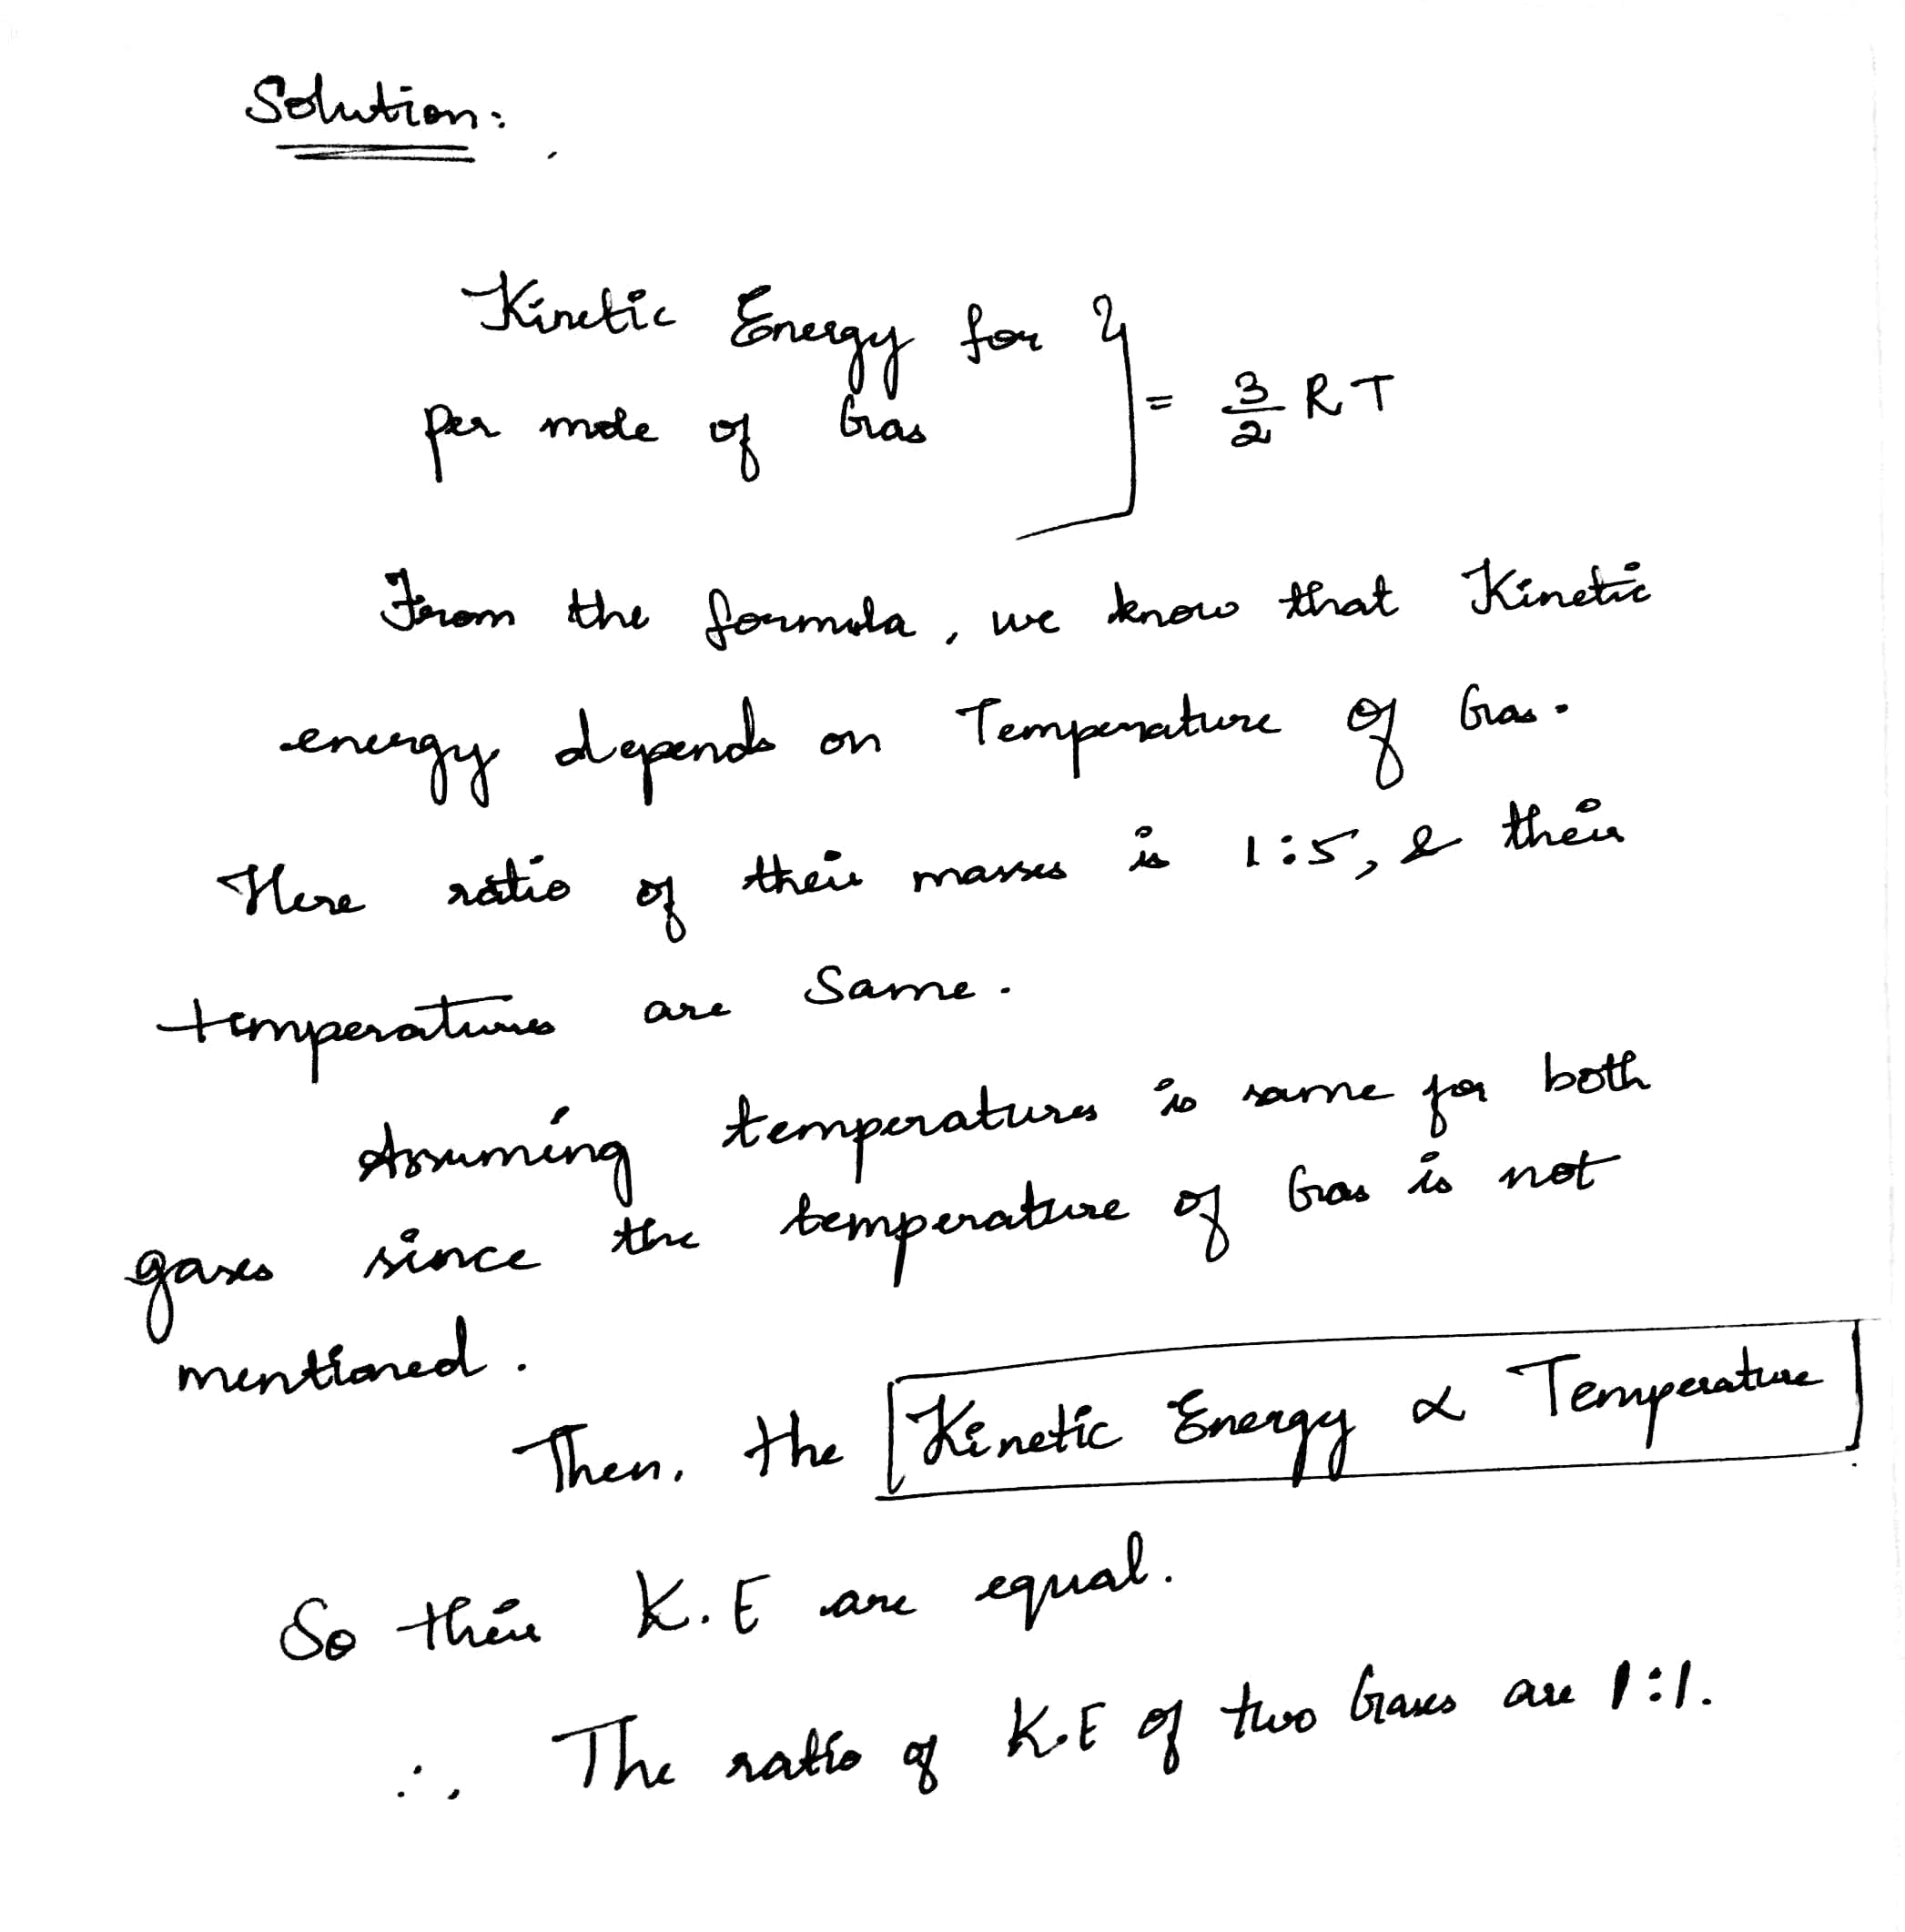 Solution:
Kinetic Energy for
per mole of Gas } = 3/2 RT
From the formula, we know that Kinetic
energy depends on Temperature of Gas.
Here ratio of their masses is 1:5, & their
temperatures are Same.
Assuming temperatures is same for both
gases since the temperature of Gas is not
mentioned.
Then, the Kinetic Energy ∝ Temperature
So their K.E are equal.
∴ The ratio of K.E of two Gases are 1:1.